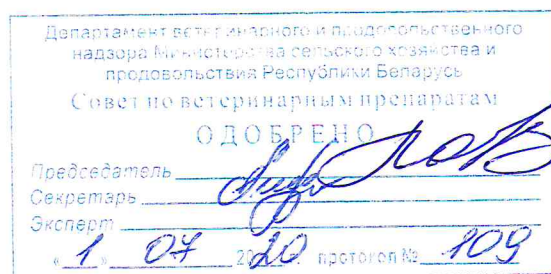 Департамент ветеринарного и продовольственного
надзора Министерства сельского хозяйства и
продовольствия Республики Беларусь
Совет по ветеринарным препаратам
ОДОБРЕНО
Председатель
Секретарь
Эксперт
« 1 » 07 2020 г. протокол № 109